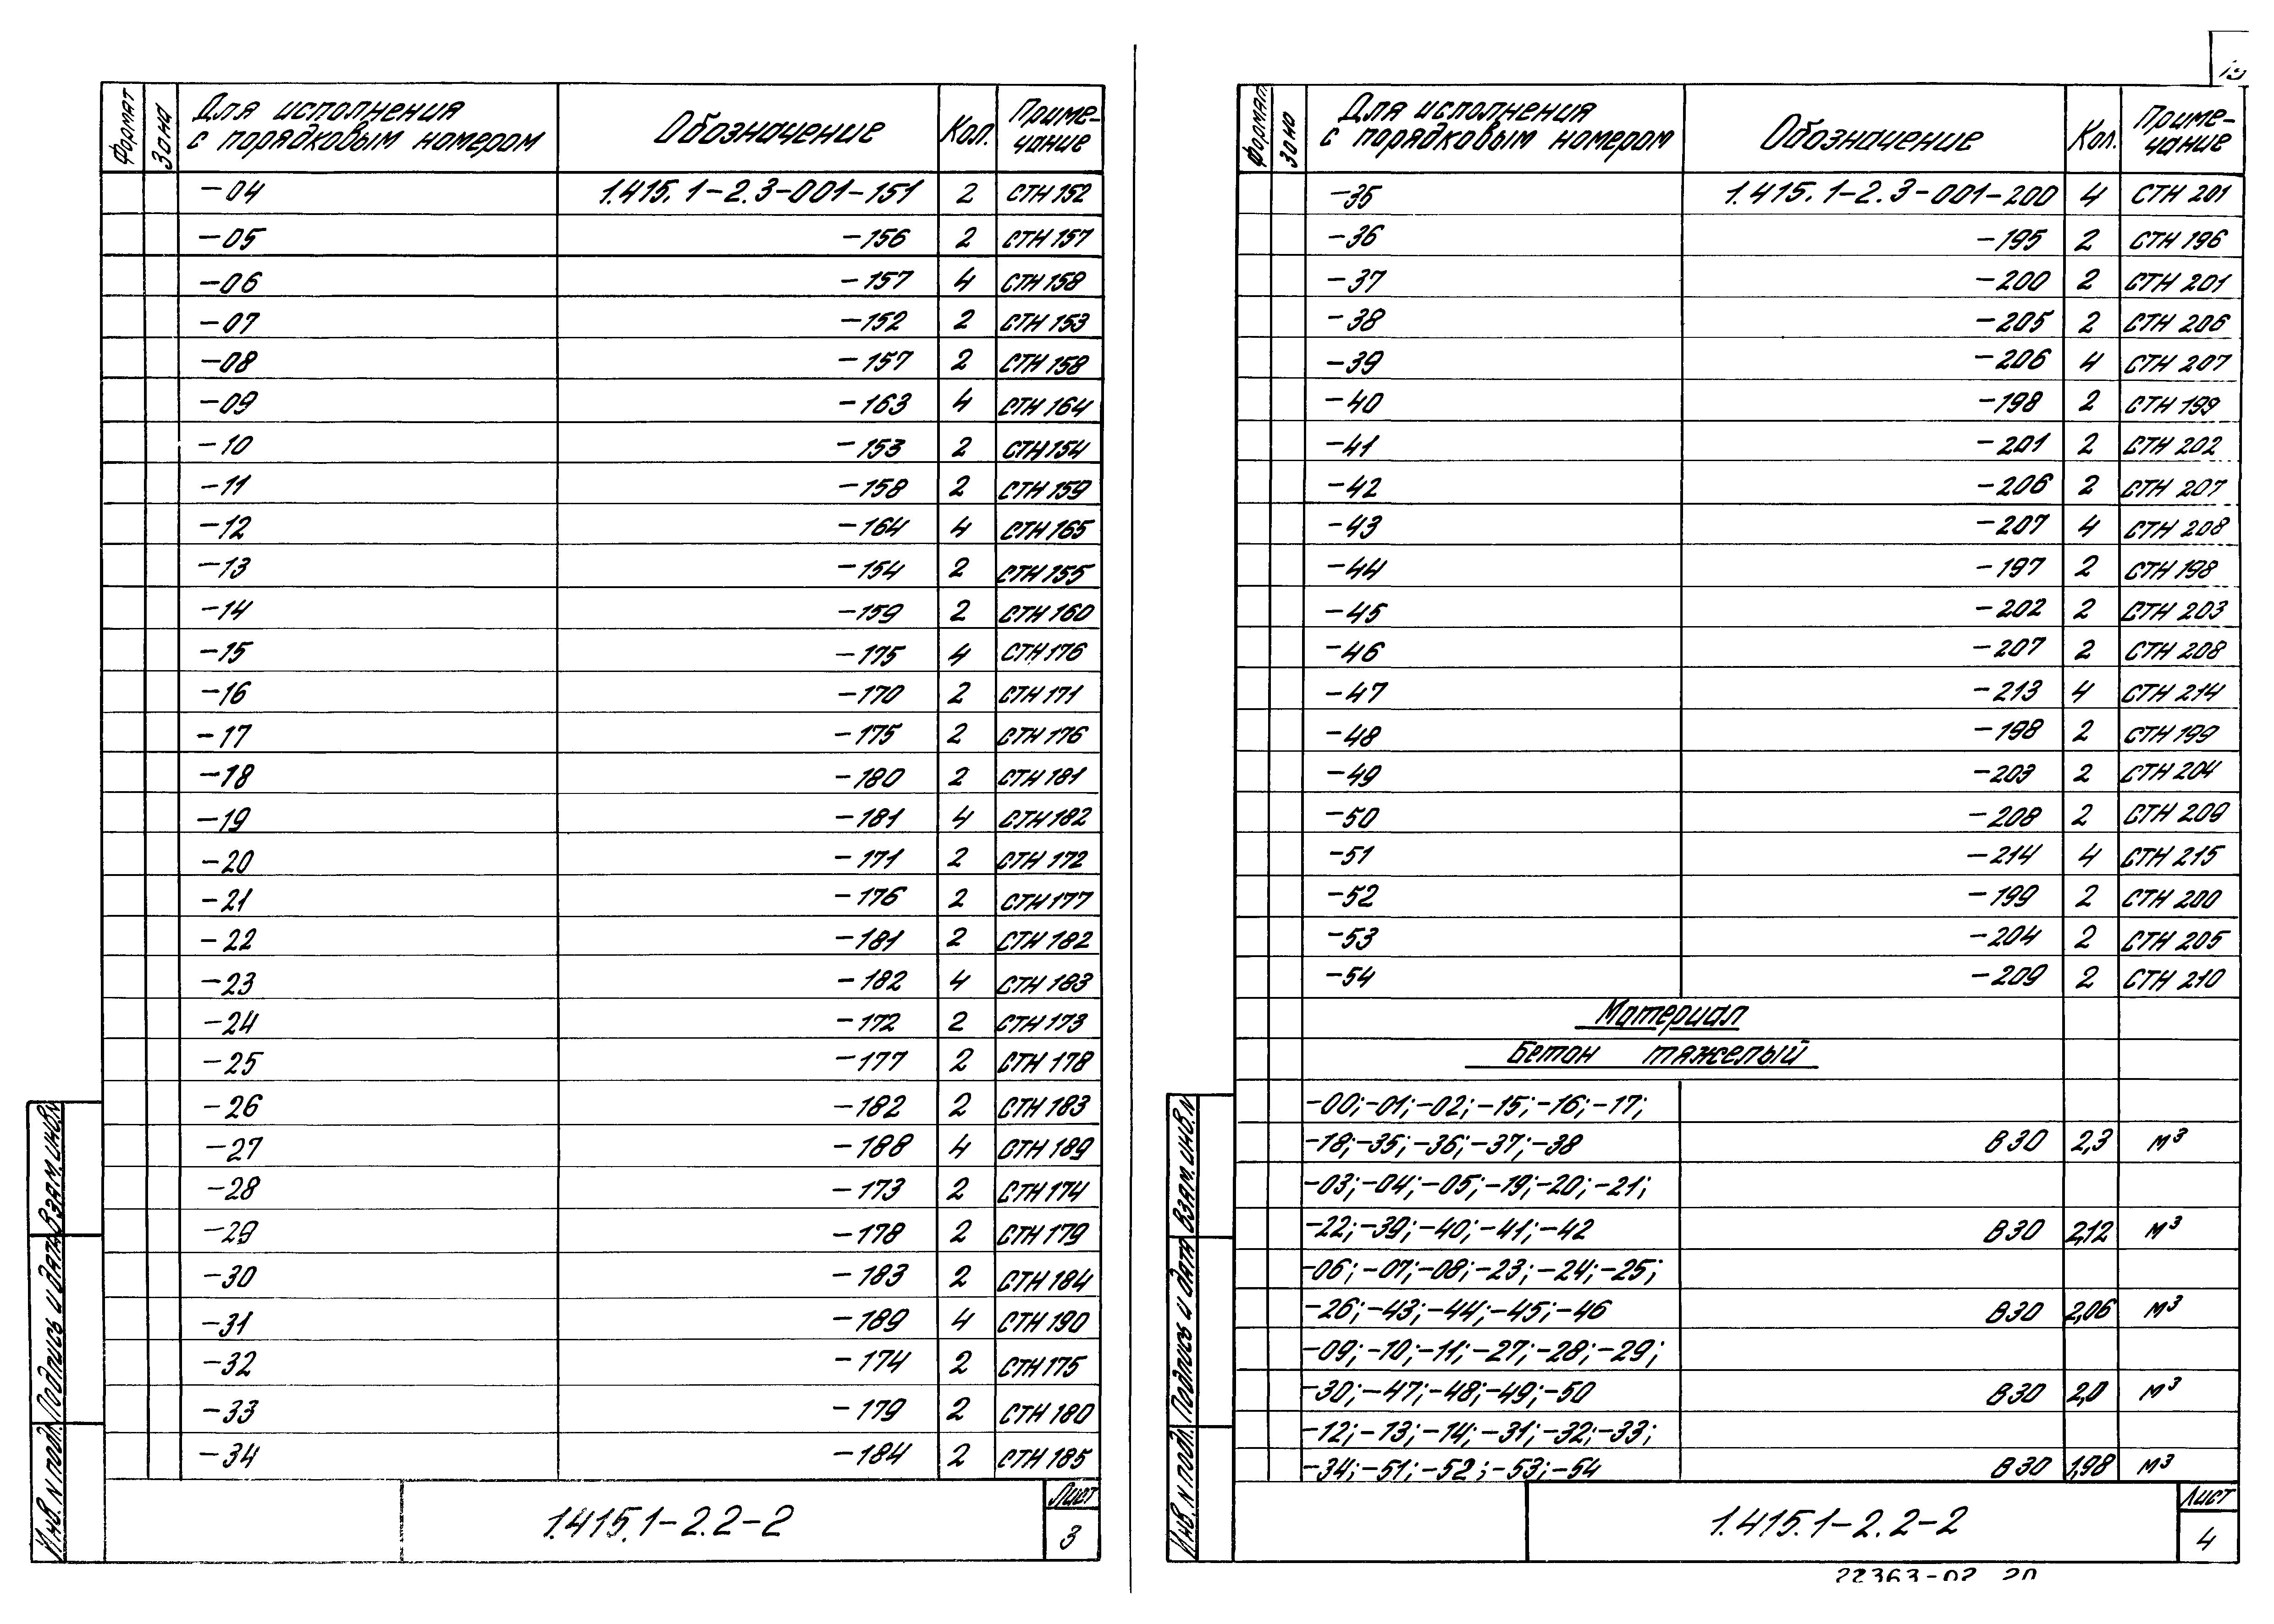 Формат Зона Для исполнения с порядковым номером Обозначение Кол. Приме-чание
-04 1.415.1-2.3-001-151 2 СТН 152
-05 -156 2 СТН 157
-06 -157 4 СТН 158
-07 -152 2 СТН 153
-08 -157 2 СТН 158
-09 -163 4 СТН 164
-10 -153 2 СТН 154
-11 -158 2 СТН 159
-12 -164 4 СТН 165
-13 -154 2 СТН 155
-14 -159 2 СТН 160
-15 -175 4 СТН 176
-16 -170 2 СТН 171
-17 -175 2 СТН 176
-18 -180 2 СТН 181
-19 -181 4 СТН 182
-20 -171 2 СТН 172
-21 -176 2 СТН 177
-22 -181 2 СТН 182
-23 -182 4 СТН 183
-24 -172 2 СТН 173
-25 -177 2 СТН 178
-26 -182 2 СТН 183
-27 -188 4 СТН 189
-28 -173 2 СТН 174
-29 -178 2 СТН 179
-30 -183 2 СТН 184
-31 -189 4 СТН 190
-32 -174 2 СТН 175
-33 -179 2 СТН 180
-34 -184 2 СТН 185
Инв. N подл. Подпись и дата Взам. инв. N
1.415.1-2.2-2
Лист
3
Формат Зона Для исполнения с порядковым номером Обозначение Кол. Приме-чание
-35 1.415.1-2.3-001-200 4 СТН 201
-36 -195 2 СТН 196
-37 -200 2 СТН 201
-38 -205 2 СТН 206
-39 -206 4 СТН 207
-40 -198 2 СТН 199
-41 -201 2 СТН 202
-42 -206 2 СТН 207
-43 -207 4 СТН 208
-44 -197 2 СТН 198
-45 -202 2 СТН 203
-46 -207 2 СТН 208
-47 -213 4 СТН 214
-48 -198 2 СТН 199
-49 -203 2 СТН 204
-50 -208 2 СТН 209
-51 -214 4 СТН 215
-52 -199 2 СТН 200
-53 -204 2 СТН 205
-54 -209 2 СТН 210
Материал
Бетон тяжелый
-00;-01;-02;-15;-16;-17;
-18;-35;-36;-37;-38 В30 2,3 м³
-03;-04;-05;-19;-20;-21;
-22;-39;-40;-41;-42 В30 2,12 м³
-06;-07;-08;-23;-24;-25;
-26;-43;-44;-45;-46 В30 2,06 м³
-09;-10;-11;-27;-28;-29;
-30;-47;-48;-49;-50 В30 2,0 м³
-12;-13;-14;-31;-32;-33;
-34;-51;-52;-53;-54 В30 1,98 м³
Инв. N подл. Подпись и дата Взам. инв. N
1.415.1-2.2-2
Лист
4
22363-02 20